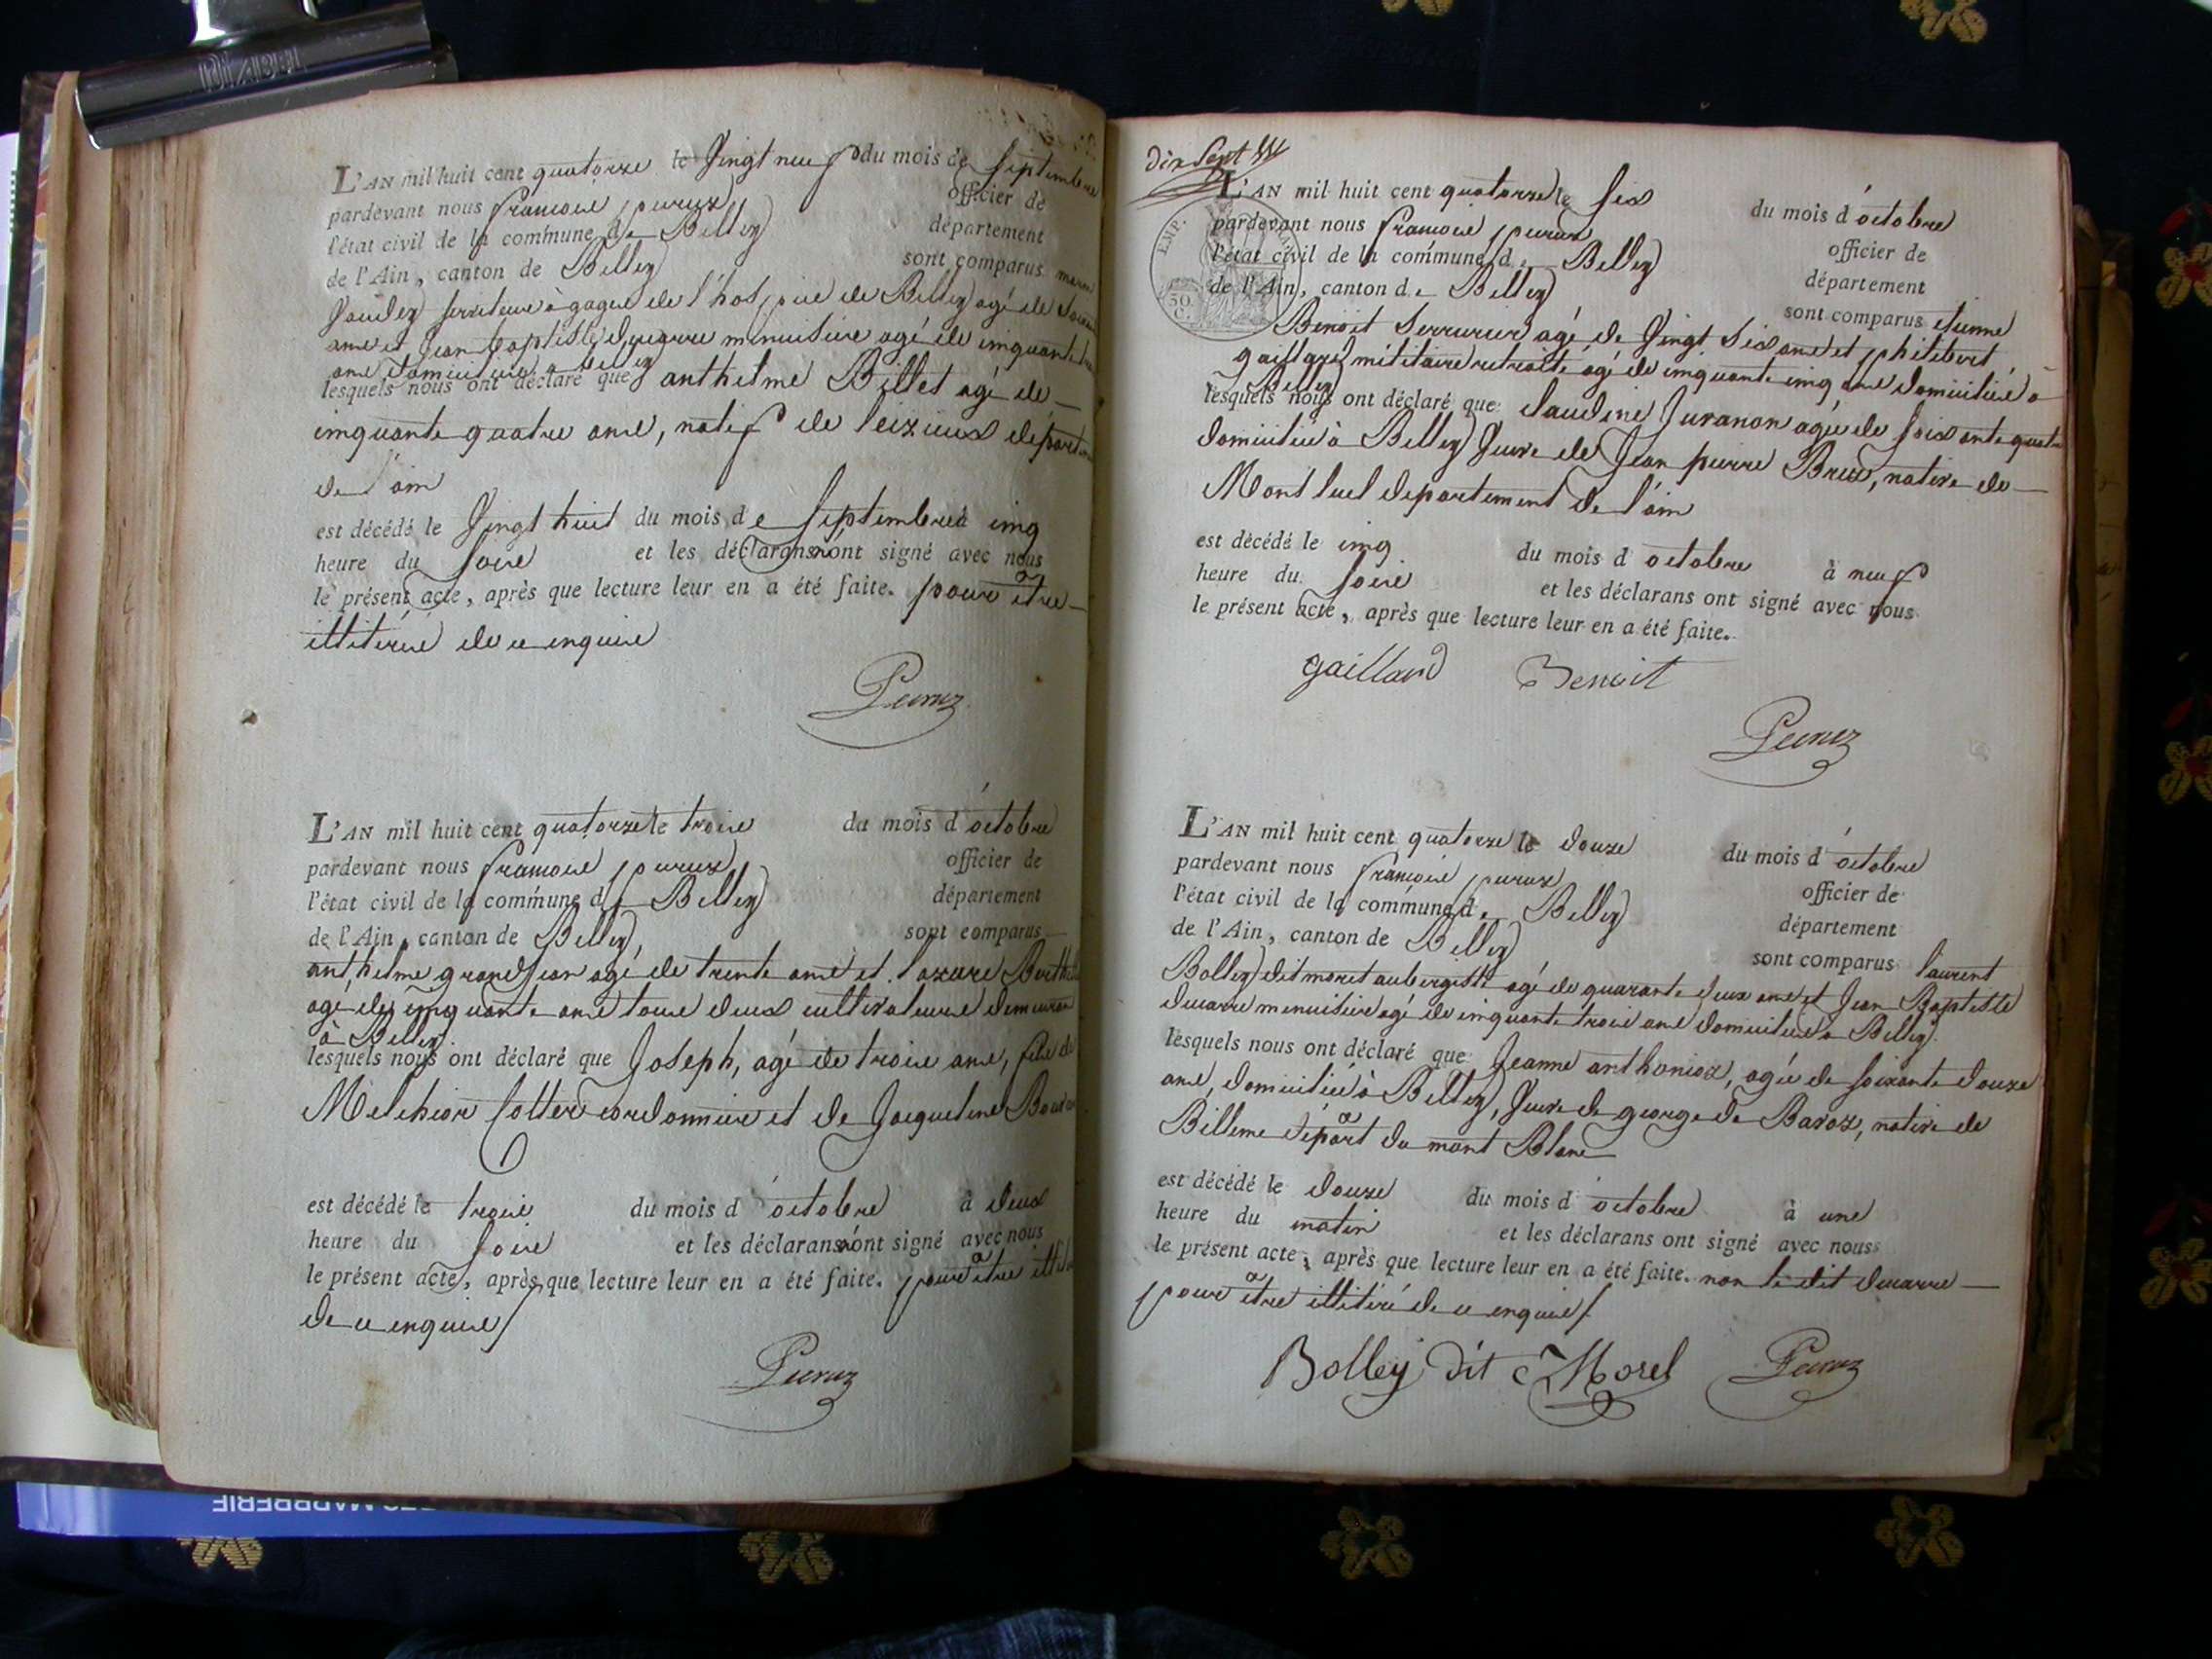 L'AN mil huit cent quatorze le vingt neuf du mois de septembre
pardevant nous françois peruz officier de
l'état civil de la commune de Belley département
de l'Ain, canton de Belley sont comparus
serviteur à gages de l'hospice de Belley agé de
ans et Jean Baptiste ducarre menuisier agé de cinquante
ans domiciliés à Belley
lesquels nous ont déclaré que anthelme Billet agé de
cinquante quatre ans, natif de Ceizieux départ
de l'ain
est décédé le vingt huit du mois de septembre à cinq
heure du soir et les déclarans n'ont signé avec nous
le présent acte, après que lecture leur en a été faite. pour être
illitérés de ce enquis
Peruz
L'AN mil huit cent quatorze le trois du mois d'octobre
pardevant nous françois peruz officier de
l'état civil de la commune de Belley département
de l'Ain, canton de Belley, sont comparus
anthelme grandjean agé de trente ans et lazare
agé de cinquante ans tous deux cultivateurs demeuran
à Belley
lesquels nous ont déclaré que Joseph, agé de trois ans, fils de
Melchior Cottet cordonnier et de Jacqueline
est décédé le trois du mois d'octobre à deux
heure du soir et les déclarans n'ont signé avec nous
le présent acte, après que lecture leur en a été faite. pour être
de ce enquis
Peruz
dix sept
EMP.
30
C.
L'AN mil huit cent quatorze le six du mois d'octobre
pardevant nous françois peruz officier de
l'état civil de la commune de Belley département
de l'Ain, canton de Belley sont comparus etienne
Benoit serrurier agé de vingt six ans et philibert
gaillard militaire retraité agé de cinquante cinq ans domiciliés à
Belley
lesquels nous ont déclaré que claudine Juranon agée de soixante quatre
domiciliée à Belley veuve de Jean pierre Brux, native de
Mont luel departement de l'ain
est décédé le cinq du mois d'octobre à neuf
heure du soir et les déclarans ont signé avec nous
le présent acte, après que lecture leur en a été faite.
gaillard Benoit
Peruz
L'AN mil huit cent quatorze le douze du mois d'octobre
pardevant nous françois peruz officier de
l'état civil de la commune de Belley département
de l'Ain, canton de Belley sont comparus laurent
Bolley dit morel aubergiste agé de quarante deux ans et Jean Baptiste
ducarre menuisier agé de cinquante trois ans domiciliés à Belley.
lesquels nous ont déclaré que Jeanne anthonioz, agée de soixante douze
ans, domiciliée à Belley, veuve de george de Baroz, native de
Billeme départ du mont Blanc
est décédé le douze du mois d'octobre à une
heure du matin et les déclarans ont signé avec nous
le présent acte, après que lecture leur en a été faite. non le dit ducarre
pour être illitéré de ce enquis
Bolley dit Morel Peruz